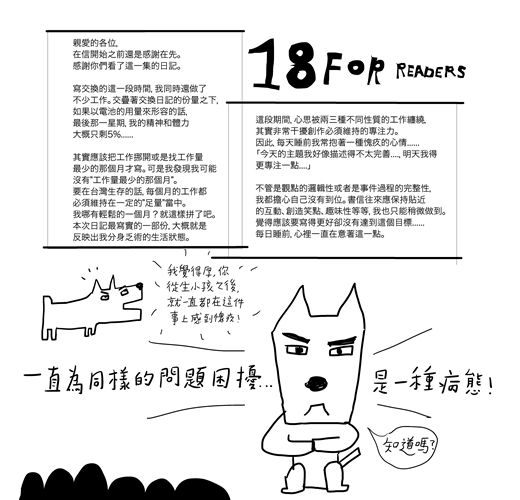 18 FOR READERS
親愛的各位,
在信開始之前還是感謝在先。
感謝你們看了這一集的日記。
寫交換的這一段時間, 我同時還做了
不少工作。交疊著交換日記的份量之下,
如果以電池的用量來形容的話,
最後那一星期, 我的精神和體力
大概只剩5%......
其實應該把工作挪開或是找工作量
最少的那個月才寫。可是我發現我可能
沒有“工作量最少的那個月”。
要在台灣生存的話, 每個月的工作都
必須維持在一定的“足量”當中。
我哪有輕鬆的一個月？就這樣拼了吧。
本次日記最寫實的一部份, 大概就是
反映出我分身乏術的生活狀態。
這段期間, 心思被兩三種不同性質的工作纏繞,
其實非常干擾創作必須維持的專注力。
因此, 每天睡前我常抱著一種愧疚的心情......
「今天的主題我好像描述得不太完善...., 明天我得
更專注一點....」
不管是觀點的邏輯性或者是事件過程的完整性,
我都擔心自己沒有到位。書信往來應保持貼近
的互動、創造笑點、趣味性等等, 我也只能稍微做到。
覺得應該要寫得更好卻沒有達到這個目標......
每日睡前, 心裡一直在意著這一點。
我覺得厚, 你
從生小孩之後,
就一直都在這件
事上感到愧疚!
一直為同樣的問題困擾... 是一種病態!
知道嗎?